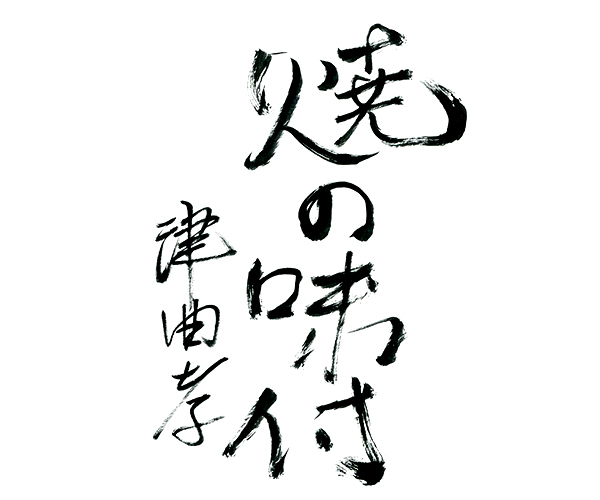 焼の味付
津曲孝